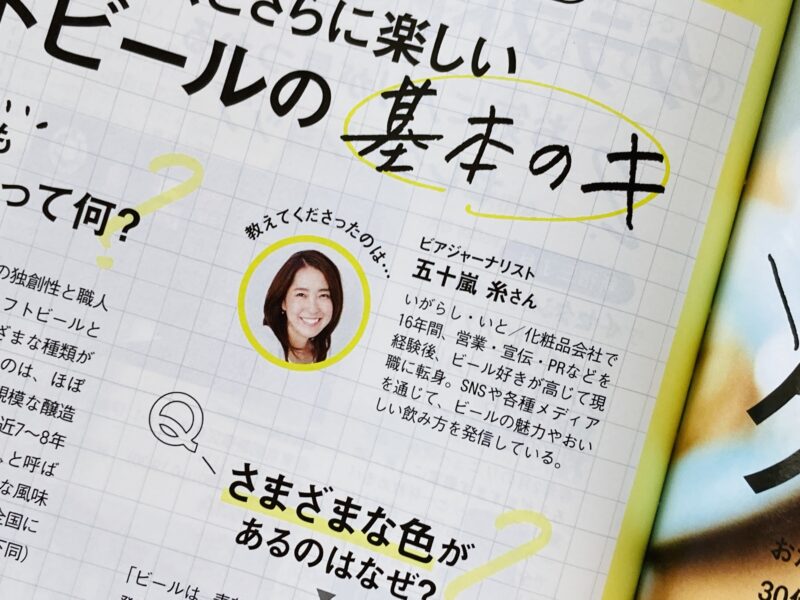 とさらに楽しい
トビールの
基本のキ
いい
も
って何?
教えてくださったのは…
ビアジャーナリスト
五十嵐 糸さん
いがらし・いと／化粧品会社で
16年間、営業・宣伝・PRなどを
経験後、ビール好きが高じて現
職に転身。SNSや各種メディア
を通じて、ビールの魅力やおい
しい飲み方を発信している。
の独創性と職人
フトビールと
ざまな種類が
のは、ほぼ
規模な醸造
近7〜8年
と呼ば
な風味
全国に
不同）
Q
さまざまな色が
あるのはなぜ?
「ビールは、麦
30代